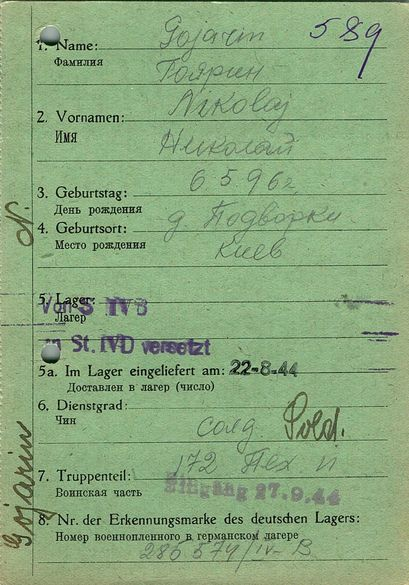 589
1. Name: Gojarin
Фамилия Гоярин
2. Vornamen: Nikolaj
Имя Николай
3. Geburtstag: 6.5.96г.
День рождения
4. Geburtsort: д. Подворки
Место рождения Киев
5. Lager:
Von S IVB
Лагер
St. IVD versetzt
5a. Im Lager eingeliefert am: 22-8-44
Доставлен в лагер (число)
6. Dienstgrad:
Чин солд. Sold.
7. Truppenteil: 172 Пех п
Воинская часть Eingang 27.9.44
8. Nr. der Erkennungsmarke des deutschen Lagers:
Номер военнопленного в германском лагере
286 579/IV-B
Gojarin N.